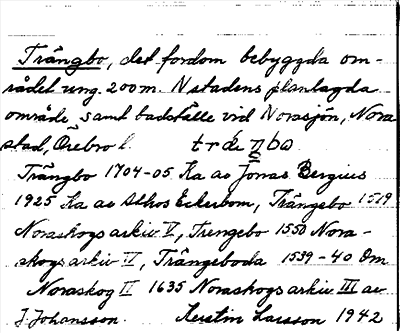 Trångbo, det fordom bebyggda om-
rådet ung. 200 m. N stadens planlagda
område samt badställe vid Norasjön, Nora
stad, Örebro l.
Trångbo 1704-05 Ka av Jonas Bergius
1925 Ka av Athos Eckerbom, Trångebo 1579
Noraskogs arkiv V, Trengebo 1550 Nora-
skogs arkiv IV, Trångeboda 1539-40 Om
Noraskog II 1635 Noraskogs arkiv III av
J. Johansson. Kerstin Larsson 1942